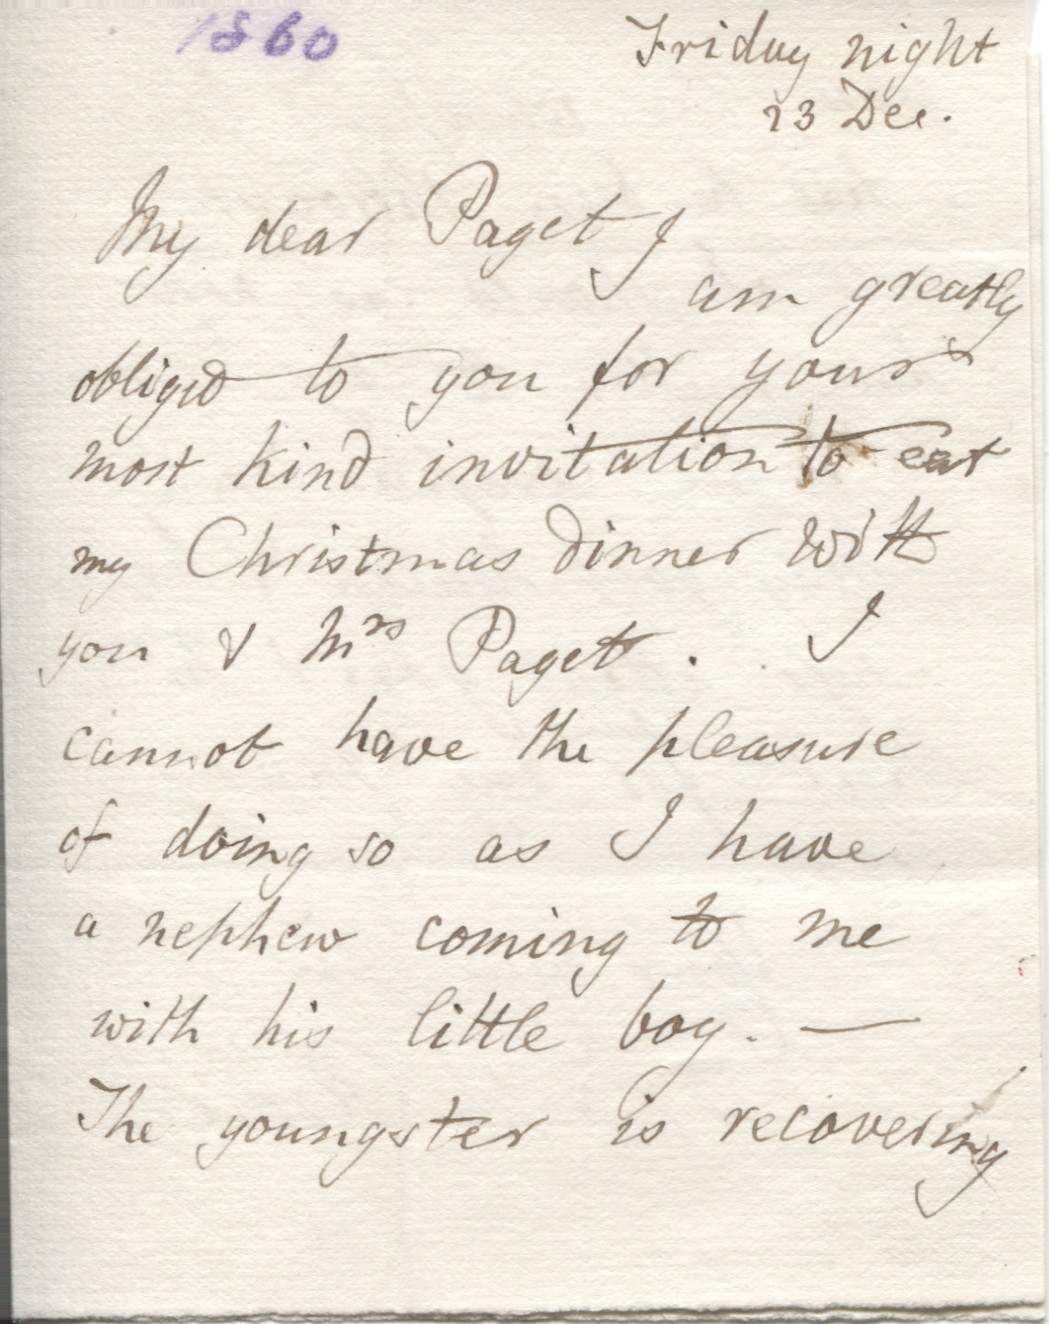 1860
Friday night
23 Dec.
My dear Paget I
am greatly
obliged to you for your
most kind invitation to eat
my Christmas dinner with
you & Mrs Paget. I
cannot have the pleasure
of doing so as I have
a nephew coming to me
with his little boy. —
The youngster is recovering